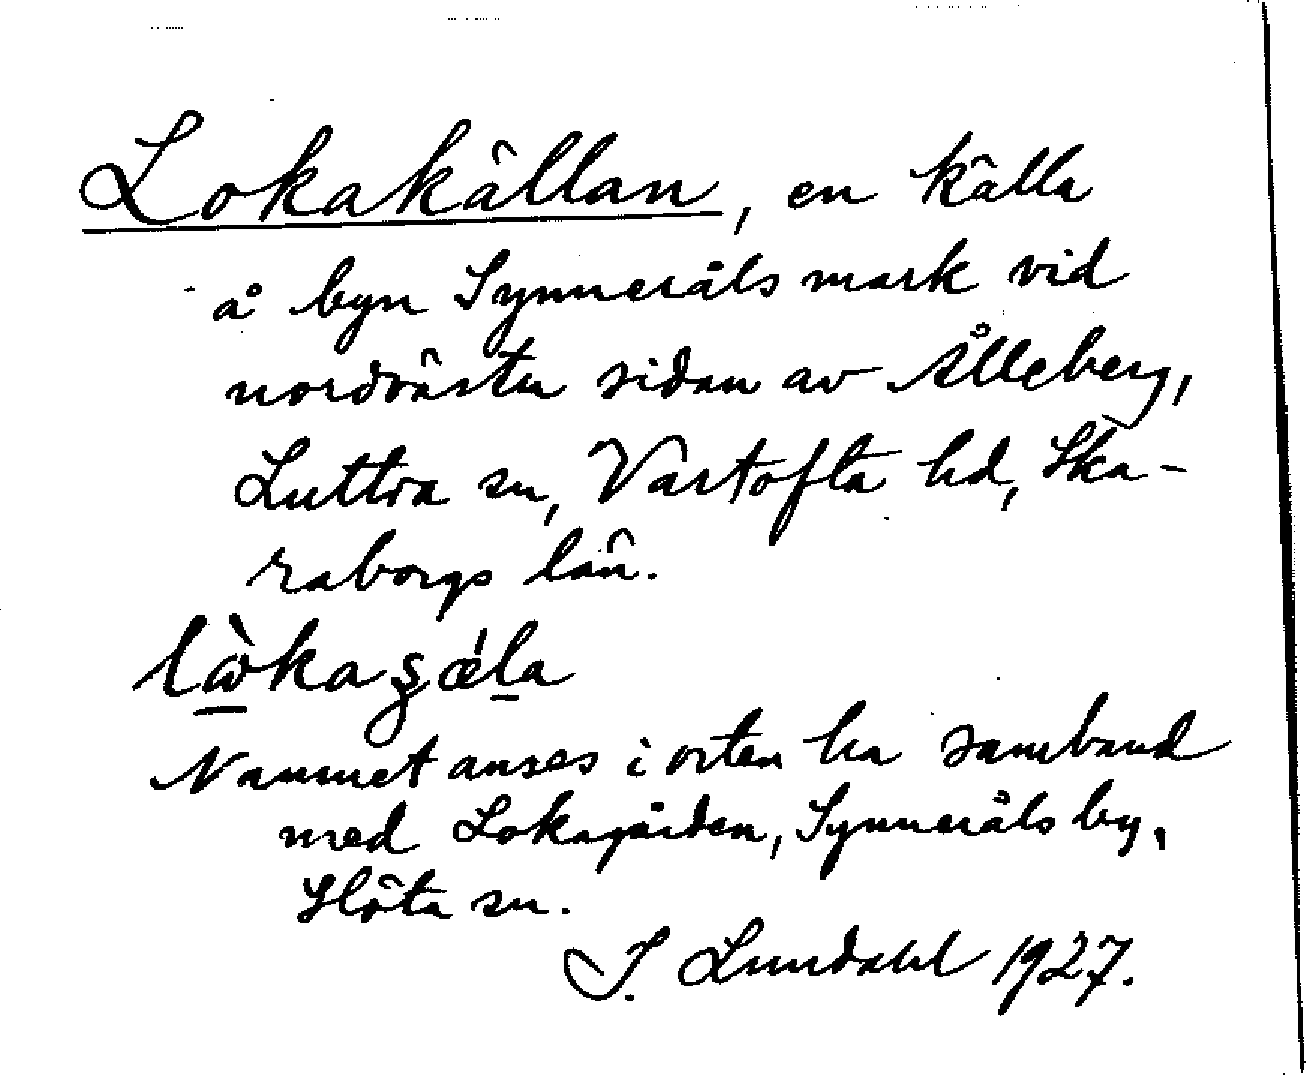 Lokakällan, en källa
å byn Synneråls mark vid
nordvästra sidan av Ålleberg,
Luttra sn, Vartofta hd, Ska-
raborgs län.
Namnet anses i orten ha samband
med Lokagården, Synneråls by,
Slöta sn.
I. Lundahl 1927.